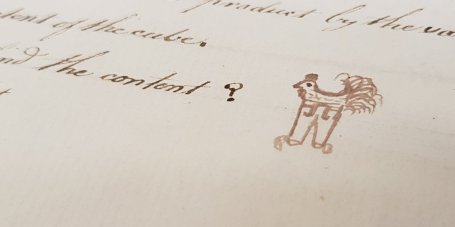 product by the va
tent of the cube.
nd the content ?